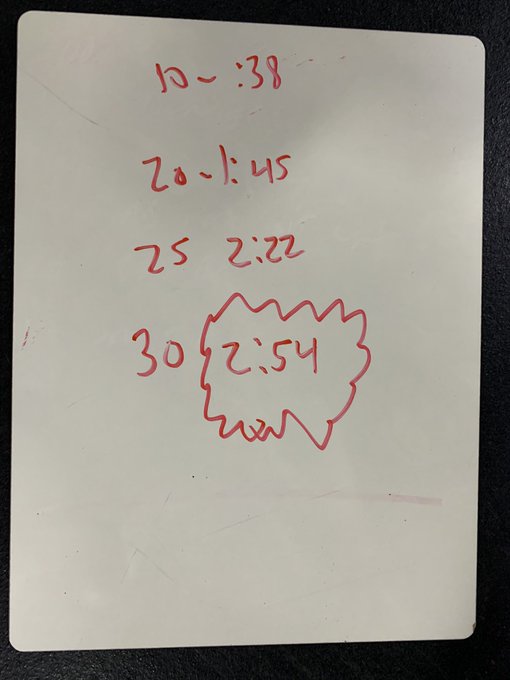 10 - :38
20 - 1:45
25 2:22
30 2:54